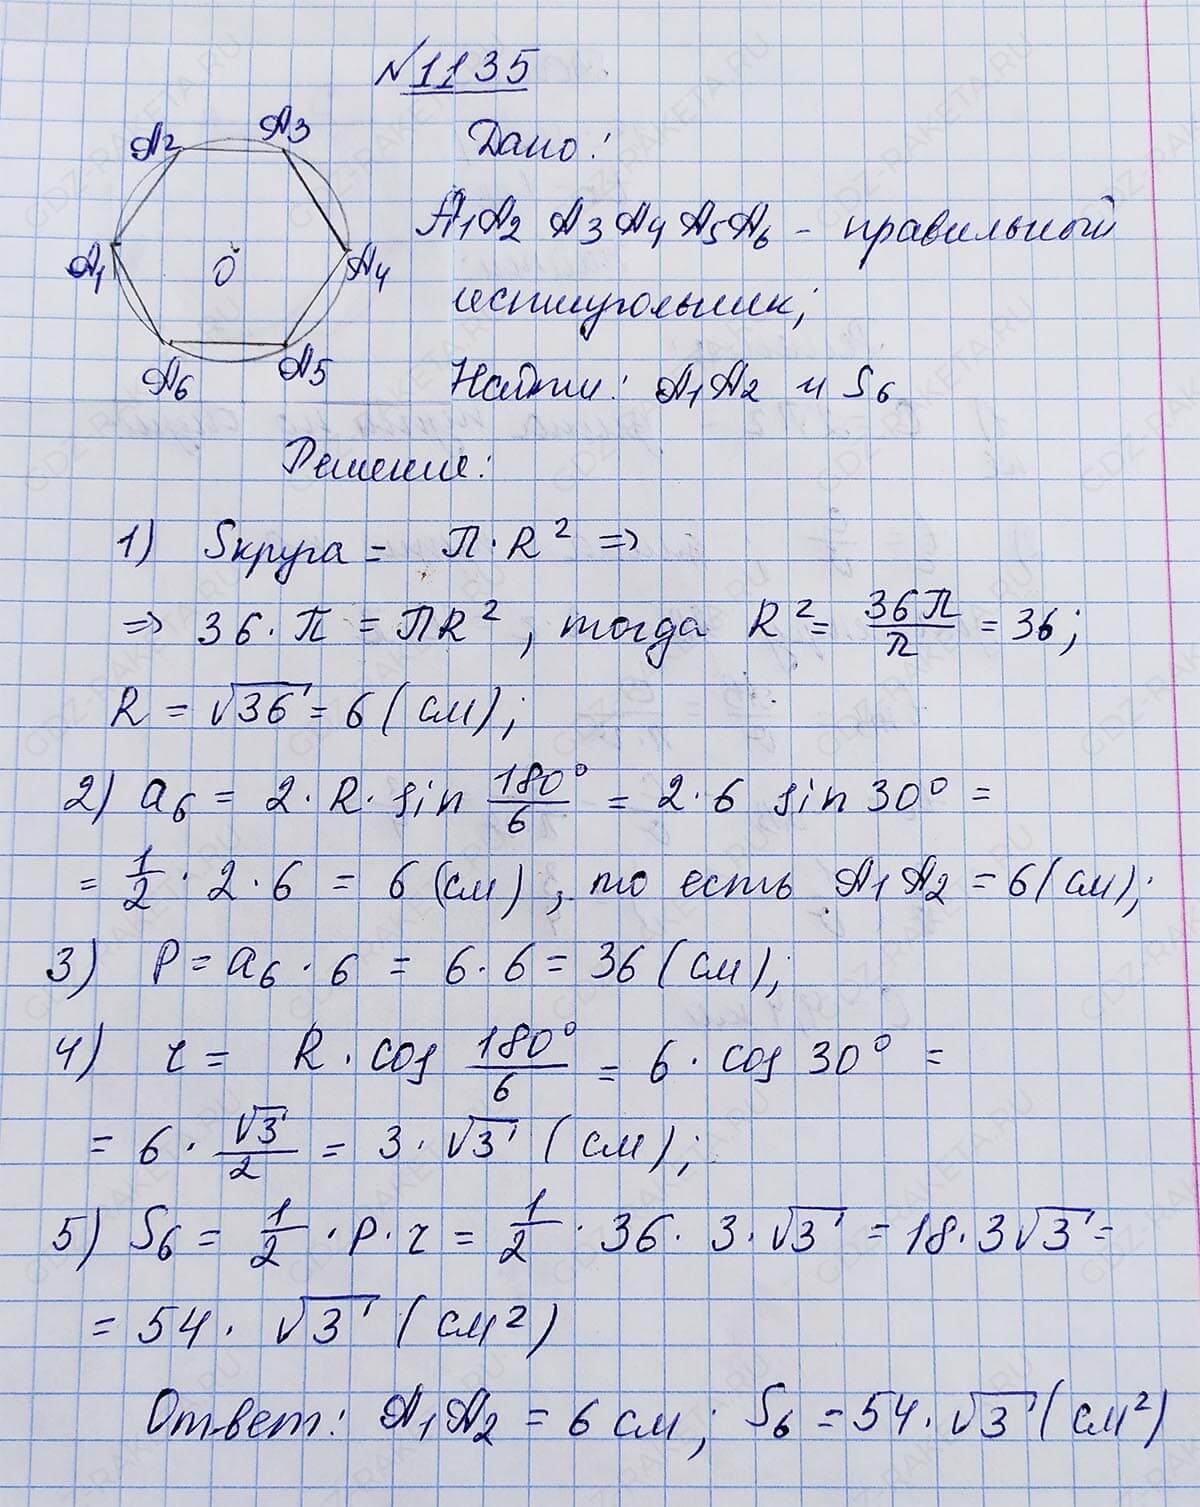 №1135
A2 A3
Дано:
A1A2 A3A4A5A6 - правильный
A1 O A4
шестиугольник;
A6 A5
Найти: A1A2 и S6
Решение:
1) Sкруга = π·R² =>
=> 36·π = πR², тогда R² = 36π/π = 36;
R = √36 = 6 (см);
2) a6 = 2·R·sin 180°/6 = 2·6 sin30° =
= 1/2 · 2·6 = 6 (см), то есть A1A2 = 6 (см);
3) P = a6·6 = 6·6 = 36 (см);
4) r = R·cos 180°/6 = 6·cos 30° =
= 6·√3/2 = 3·√3 (см);
5) S6 = 1/2 ·P·r = 1/2 · 36·3·√3 = 18·3√3 =
= 54·√3 (см²)
Ответ: A1A2 = 6 см; S6 = 54·√3 (см²)
GDZ-RAKETA.RU